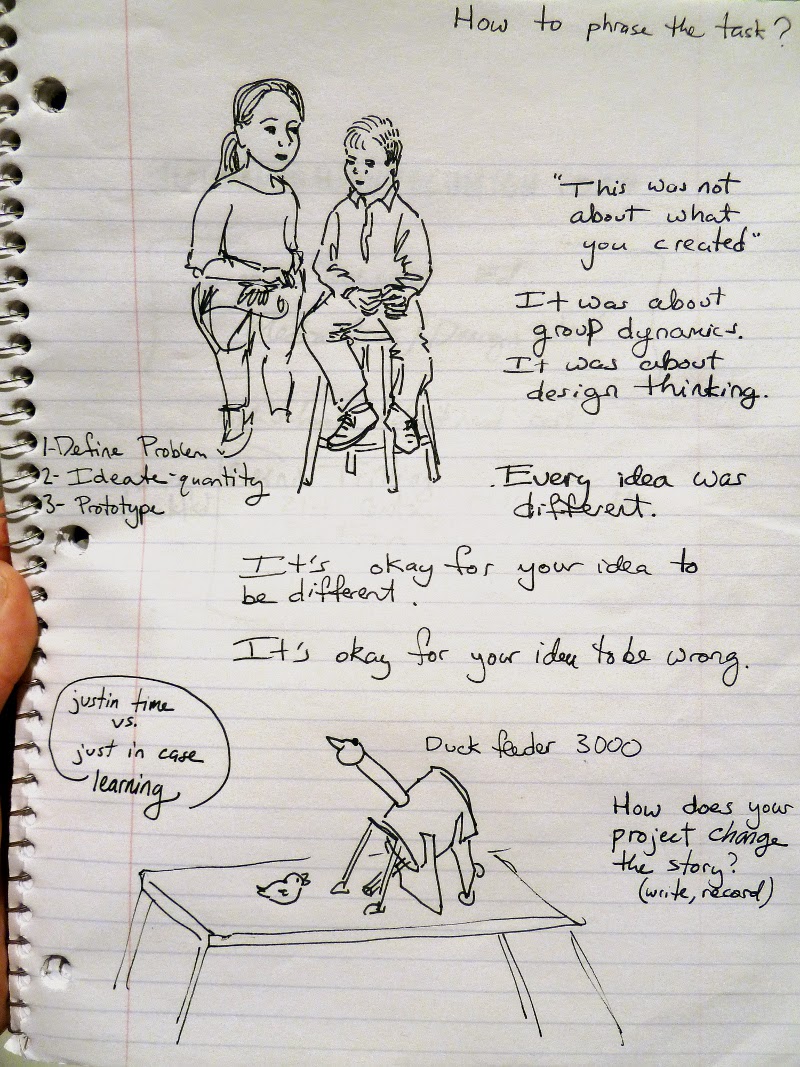 How to phrase the task?
"This was not
about what
you created"
It was about
group dynamics.
It was about
design thinking.
1-Define Problem
2- Ideate-quantity
3- Prototype
Every idea was
different.
It's okay for your idea to
be different.
It's okay for your idea to be wrong.
just in time
vs.
just in case
learning
Duck feeder 3000
How does your
project change
the story?
(write, record)